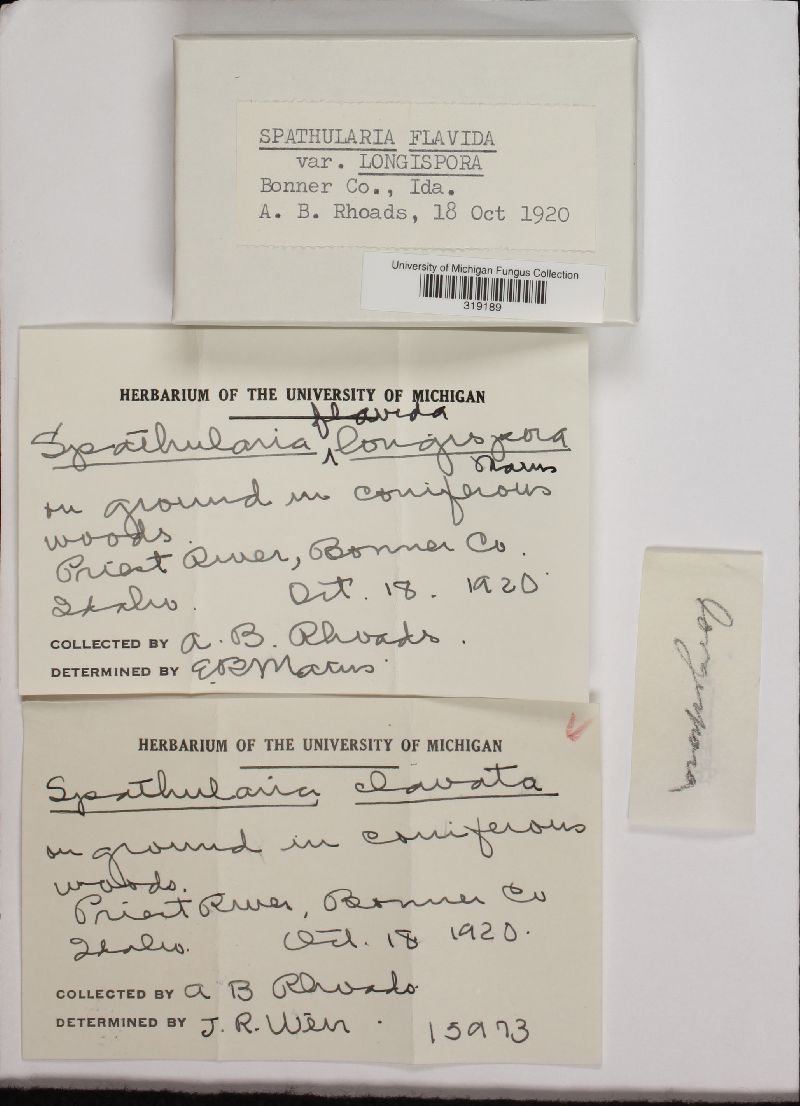 SPATHULARIA FLAVIDA
var. LONGISPORA
Bonner Co., Ida.
A. B. Rhoads, 18 Oct 1920
University of Michigan Fungus Collection
319189
HERBARIUM OF THE UNIVERSITY OF MICHIGAN
flavida
Spathularia longispora
Mains
on ground in coniferous
woods.
Priest River, Bonner Co.
Idaho. Oct. 18. 1920
COLLECTED BY A. B. Rhoads.
DETERMINED BY EB Mains
longispora
HERBARIUM OF THE UNIVERSITY OF MICHIGAN
Spathularia clavata
on ground in coniferous
woods.
Priest River, Bonner Co
Idaho. Oct. 18 1920.
COLLECTED BY A B Rhoads
DETERMINED BY J. R. Weir. 15973